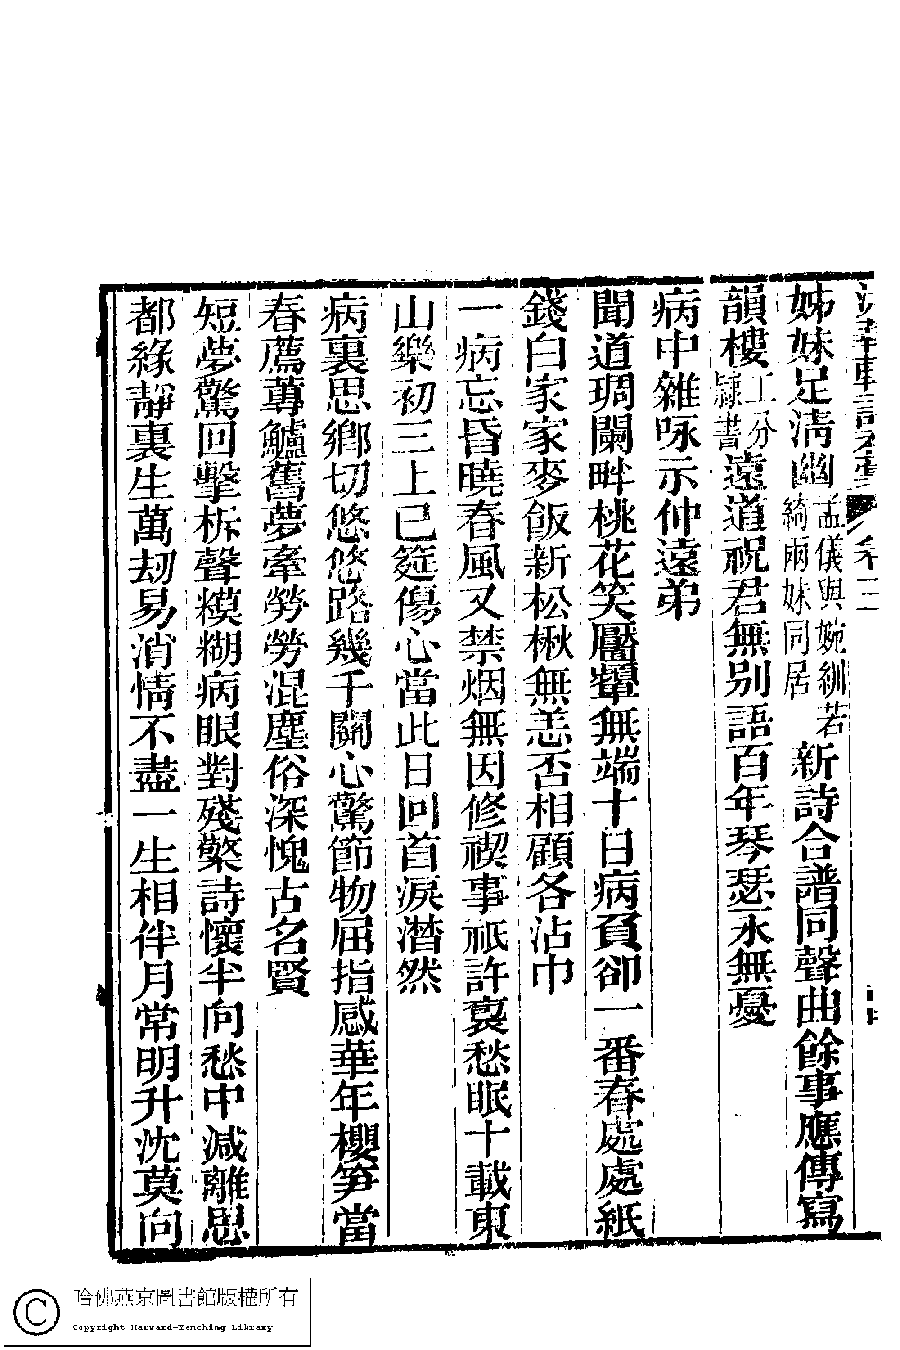 姊妹足清幽孟儀與婉紃若綺兩妹同居新詩合譜同聲曲餘事應傳寫
韻樓工分隸書遠道祝君無别語百年琴瑟永無憂
病中雜咏示仲遠弟
聞道琱闌畔桃花笑靨顰無端十日病負卻一番春處處紙
錢白家家麥飯新松楸無恙否相顧各沾巾
一病忘昏曉春風又禁烟無因修禊事祇許裏愁眠十載東
山樂初三上巳筵傷心當此日回首淚潸然
病裏思鄉切悠悠路幾千關心驚節物屈指感華年櫻笋當
春薦蓴鱸舊夢牽勞勞混塵俗深愧古名賢
短夢驚回擊柝聲糢糊病眼對殘檠詩懷半向愁中減離思
都緣靜裏生萬刼易消情不盡一生相伴月常明升沈莫向
哈佛燕京圖書館版權所有
Copyright Harvard-Yenching Library